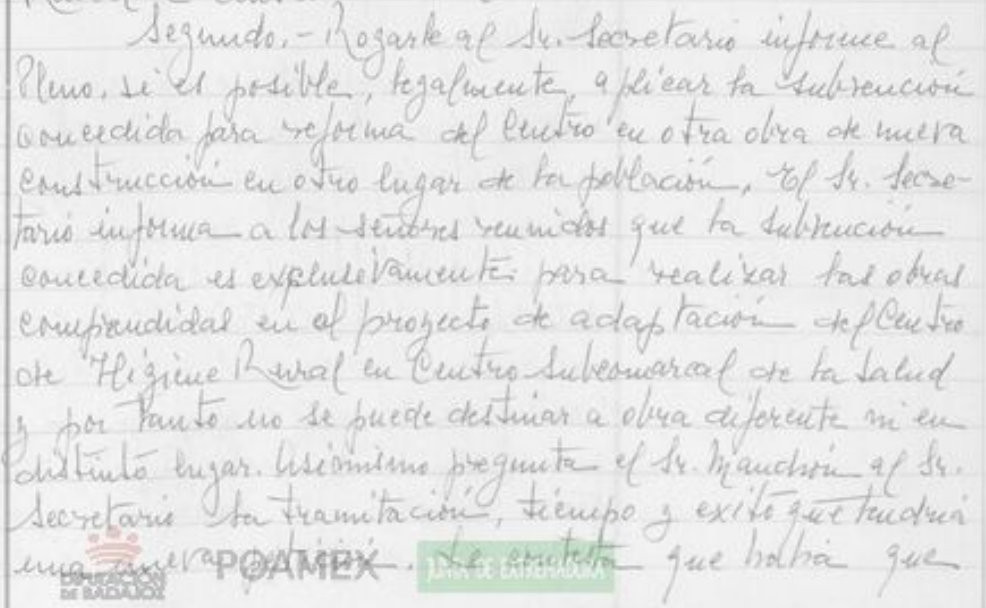 Segundo.- Rogarle al Sr. Secretario informe al
Pleno, si es posible, legalmente, aplicar la subvención
concedida para reforma del Centro en otra obra de nueva
construcción en otro lugar de la población, El Sr. Secre-
tario informa a los señores reunidos que la subvención
concedida es explusivamente para realizar las obras
comprendidas en el proyecto de adaptación del Centro
de Higiene Rural en Centro Subcomarcal de la Salud
y por tanto no se puede destinar a obra diferente ni en
distinto lugar. Asimismo pregunta el Sr. Manchón al Sr.
Secretario la tramitación, tiempo y exito que tendria
una nueva petición. Le contesta que habia que
DIPUTACIÓN DE BADAJOZ
POAMEX
JUNTA DE EXTREMADURA